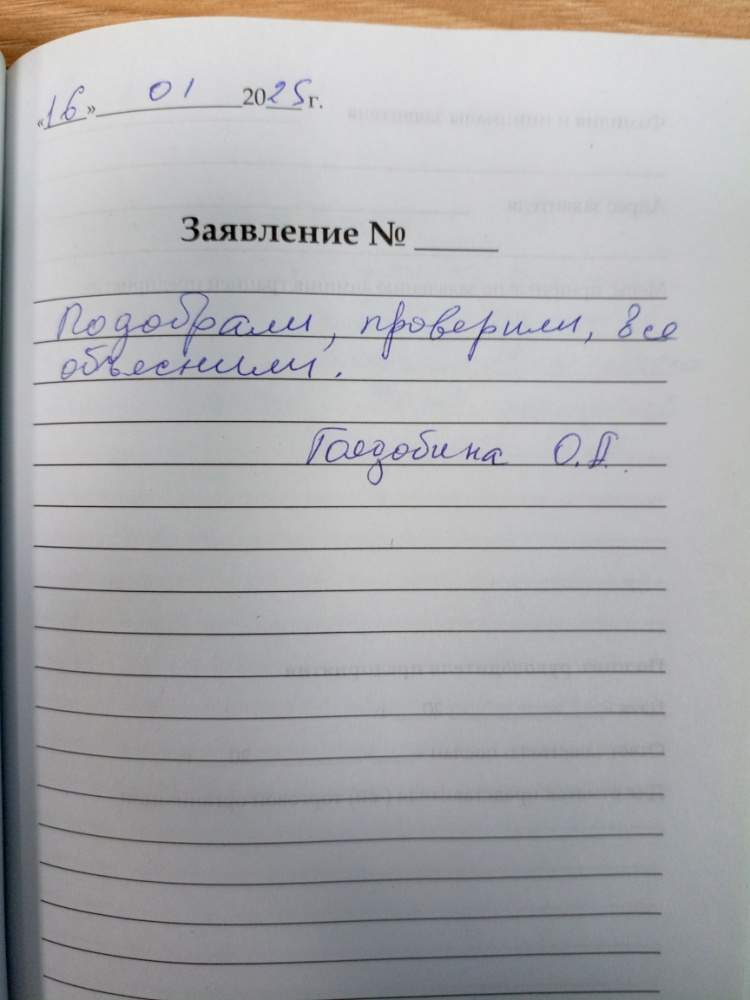 «16» 01 2025 г.
Заявление № ____
Подобрали, проверили, все
объеснили.
О.П.